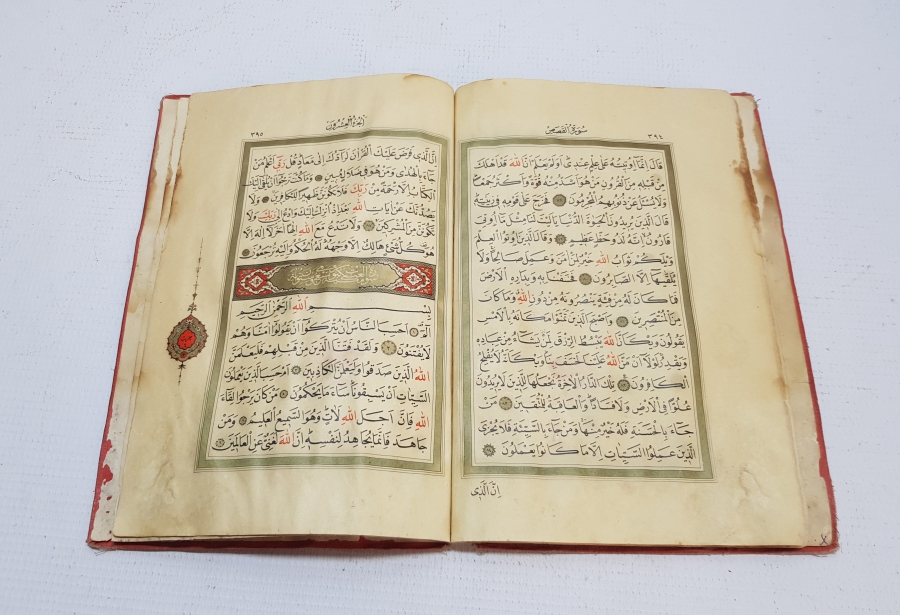 سُورَةُ الْقَصَصِ ٣٩٤
قَالَ اِنَّمَٓا اُوتِيتُهُ عَلٰى عِلْمٍ عِنْدِى اَوَلَمْ يَعْلَمْ اَنَّ اللّٰهَ قَدْ اَهْلَكَ
مِنْ قَبْلِهِ مِنَ الْقُرُونِ مَنْ هُوَ اَشَدُّ مِنْهُ قُوَّةً وَاَكْثَرُ جَمْعًا
وَلَا يُسْئَلُ عَنْ ذُنُوبِهِمُ الْمُجْرِمُونَ فَخَرَجَ عَلٰى قَوْمِهِ فِى زِينَتِهِ
قَالَ الَّذِينَ يُرِيدُونَ الْحَيٰوةَ الدُّنْيَا يَا لَيْتَ لَنَا مِثْلَ مَٓا اُوتِىَ
قَارُونُ اِنَّهُ لَذُو حَظٍّ عَظِيمٍ وَقَالَ الَّذِينَ اُوتُوا الْعِلْمَ
وَيْلَكُمْ ثَوَابُ اللّٰهِ خَيْرٌ لِمَنْ اٰمَنَ وَعَمِلَ صَالِحًا وَلَا
يُلَقّٰيهَٓا اِلَّا الصَّابِرُونَ فَخَسَفْنَا بِهِ وَبِدَارِهِ الْاَرْضَ
فَمَا كَانَ لَهُ مِنْ فِئَةٍ يَنْصُرُونَهُ مِنْ دُونِ اللّٰهِ وَمَا كَانَ
مِنَ الْمُنْتَصِرِينَ وَاَصْبَحَ الَّذِينَ تَمَنَّوْا مَكَانَهُ بِالْاَمْسِ
يَقُولُونَ وَيْكَاَنَّ اللّٰهَ يَبْسُطُ الرِّزْقَ لِمَنْ يَشَٓاءُ مِنْ عِبَادِهِ
وَيَقْدِرُ لَوْلَٓا اَنْ مَنَّ اللّٰهُ عَلَيْنَا لَخَسَفَ بِنَا وَيْكَاَنَّهُ لَا يُفْلِحُ
الْكَافِرُونَ تِلْكَ الدَّارُ الْاٰخِرَةُ نَجْعَلُهَا لِلَّذِينَ لَا يُرِيدُونَ
عُلُوًّا فِى الْاَرْضِ وَلَا فَسَادًا وَالْعَاقِبَةُ لِلْمُتَّقِينَ مَنْ
جَٓاءَ بِالْحَسَنَةِ فَلَهُ خَيْرٌ مِنْهَا وَمَنْ جَٓاءَ بِالسَّيِّئَةِ فَلَا يُجْزَى
الَّذِينَ عَمِلُوا السَّيِّئَاتِ اِلَّا مَا كَانُوا يَعْمَلُونَ
اِنَّ الَّذِى
اَلْجُزْءُ الْعِشْرُونَ ٣٩٥
اِنَّ الَّذِى فَرَضَ عَلَيْكَ الْقُرْاٰنَ لَرَٓادُّكَ اِلٰى مَعَادٍ قُلْ رَبِّى اَعْلَمُ مَنْ
جَٓاءَ بِالْهُدٰى وَمَنْ هُوَ فِى ضَلَالٍ مُبِينٍ وَمَا كُنْتَ تَرْجُٓوا اَنْ يُلْقٰٓى اِلَيْكَ
الْكِتَابُ اِلَّا رَحْمَةً مِنْ رَبِّكَ فَلَا تَكُونَنَّ ظَهِيرًا لِلْكَافِرِينَ وَلَا
يَصُدُّنَّكَ عَنْ اٰيَاتِ اللّٰهِ بَعْدَ اِذْ اُنْزِلَتْ اِلَيْكَ وَادْعُ اِلٰى رَبِّكَ وَلَا
تَكُونَنَّ مِنَ الْمُشْرِكِينَ وَلَا تَدْعُ مَعَ اللّٰهِ اِلٰهًا اٰخَرَ لَٓا اِلٰهَ اِلَّا
هُوَ كُلُّ شَىْءٍ هَالِكٌ اِلَّا وَجْهَهُ لَهُ الْحُكْمُ وَاِلَيْهِ تُرْجَعُونَ
بِسْمِ اللّٰهِ الرَّحْمٰنِ الرَّحِيمِ
الٓمٓ اَحَسِبَ النَّاسُ اَنْ يُتْرَكُٓوا اَنْ يَقُولُٓوا اٰمَنَّا وَهُمْ
لَا يُفْتَنُونَ وَلَقَدْ فَتَنَّا الَّذِينَ مِنْ قَبْلِهِمْ فَلَيَعْلَمَنَّ
اللّٰهُ الَّذِينَ صَدَقُوا وَلَيَعْلَمَنَّ الْكَاذِبِينَ اَمْ حَسِبَ الَّذِينَ يَعْمَلُونَ
السَّيِّئَاتِ اَنْ يَسْبِقُونَا سَٓاءَ مَا يَحْكُمُونَ مَنْ كَانَ يَرْجُوا لِقَٓاءَ
اللّٰهِ فَاِنَّ اَجَلَ اللّٰهِ لَاٰتٍ وَهُوَ السَّمِيعُ الْعَلِيمُ وَمَنْ
جَاهَدَ فَاِنَّمَا يُجَاهِدُ لِنَفْسِهِ اِنَّ اللّٰهَ لَغَنِىٌّ عَنِ الْعَالَمِينَ